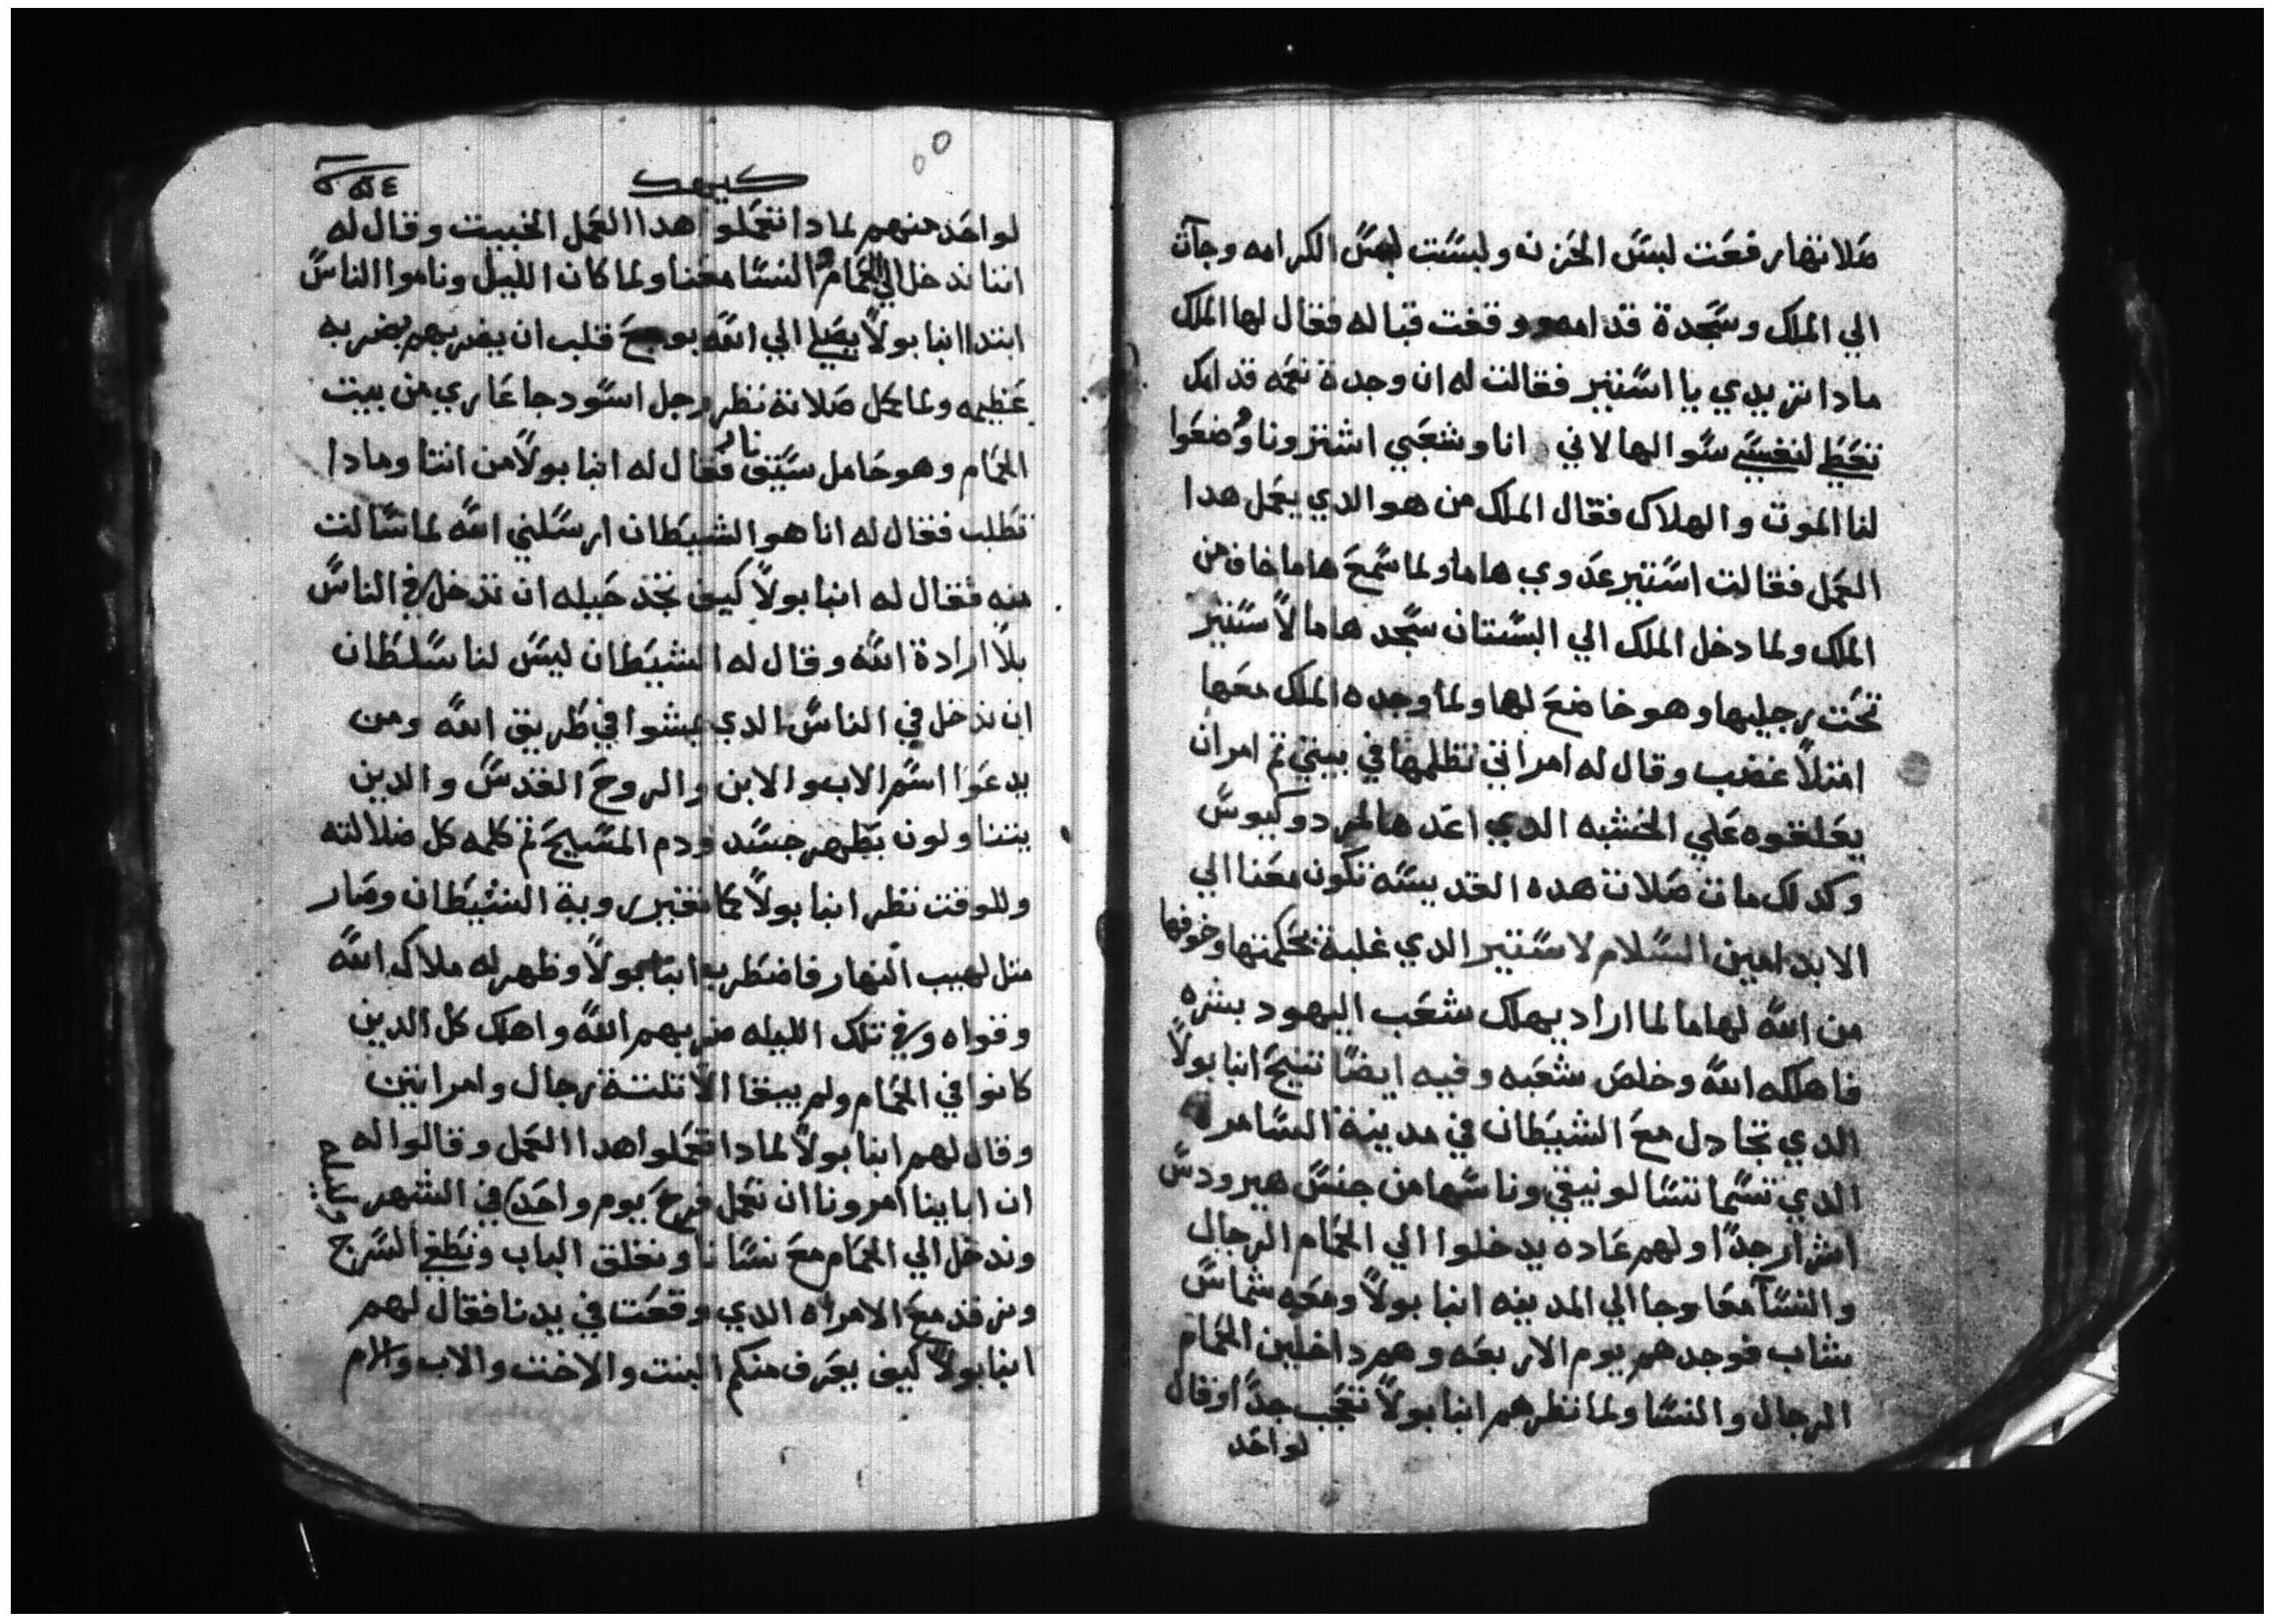 صلاتها رفعت لبس الحزنه ولبست لبس الكرامه وجآت
الي الملك وسجدة قدامه ووقفت قباله فقال لها الملك
مادا تريدي يا استير فقالت له ان وجدة نعمه قدامك
تعطي لنفسي سوالها لاني انا وشعبي اشترونا وضعوا
لنا الموت والهلاك فقال الملك من هو الدي يعمل هدا
العمل فقالت استير عدوي هاما ولما سمع هاما خاف من
الملك ولما دخل الملك الي البستان سجد هاما لاستير
تحت رجليها وهو خاضع لها ولما وجده الملك معها
امتلا غضب وقال له امراتي تظلمها في بيتي تم امر ان
يعلقوه علي الخشبه الدي اعدها لمردوكيوس
وكدلك ماتت صلات هده القديسه تكون معنا الي
الابد امين السلام لاستير الدي غلبة بحكمتها وخوفها
من الله لهاما لما اراد يهلك شعب اليهود بشره
فاهلكه الله وخلص شعبه وفيه ايضا تنيح انبا بولا
الدي تجادل مع الشيطان في مدينة السامره
الدي تسما تسالونيقي وناسها من جنس هيرودس
اشرار جدا ولهم عاده يدخلوا الي الحمام الرجال
والنسآ معا وجا الي المدينه انبا بولا ومعه شماس
شاب فوجدهم يوم الاربعه وهم داخلين الحمام
الرجال والنسا ولما نظرهم انبا بولا تعجب جدا وقال
لواحد
كيهك
لواحد منهم لمادا تعملوا هدا العمل الخبيت وقال له
اننا ندخل الي الحمام والنسا معنا ولما كان الليل وناموا الناس
ابتدا انبا بولا يصلي الي الله قلب ان يضربهم بضربه
عظيمه ولما كمل صلاته نظر رجل اسود جا عاري من بيت
الحمام وهو حامل سيف نار فقال له انبا بولا من انتا ومادا
تطلب فقال له انا هو الشيطان ارسلني الله لما سالت
منه فقال له انبا بولا كيف تجد حيله ان تدخل في الناس
بلا ارادة الله وقال له الشيطان ليس لنا سلطان
ان ندخل في الناس الدي يمشوا في طريق الله ومن
يدعوا اسم الاب والابن والروح القدس والدين
يتناولون بطهر جسد ودم المسيح تم كلمه كل ضلالته
وللوقت نظر انبا بولا كما تغير روية الشيطان وصار
متل لهيب النهار فاضطرب انبا بولا وظهر له ملاك الله
وقواه وفي تلك الليله ضربهم الله واهلك كل الدين
كانوا في الحمام ولم يبقا الا تلتة رجال وامراتين
وقال لهم انبا بولا لمادا تعملوا هدا العمل وقالوا له
ان اباينا امرونا ان نعمل فرح يوم واحد في الشهر
وندخل الي الحمام مع نسانا ونغلق الباب ونطفي السرج
ونرقد مع الامراه الدي وقعت في يدنا فقال لهم
انبا بولا كيف يعرف منكم البنت والاخت والاب والام